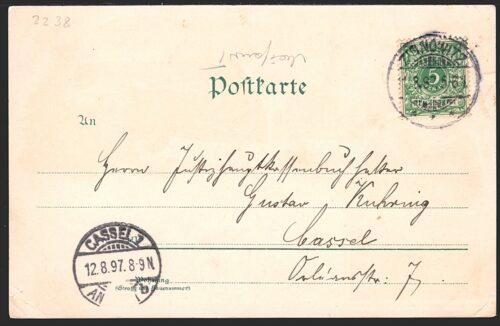 2238
Postkarte
ZINNOWITZ
5
An
Herrn Justizhauptkassenbuchhalter
Gustav Kuhring
Cassel
Orléansstr. 7.
CASSEL 1
12.8.97. 8-9 N
AN
Wohnung
(Straße und Hausnummer)